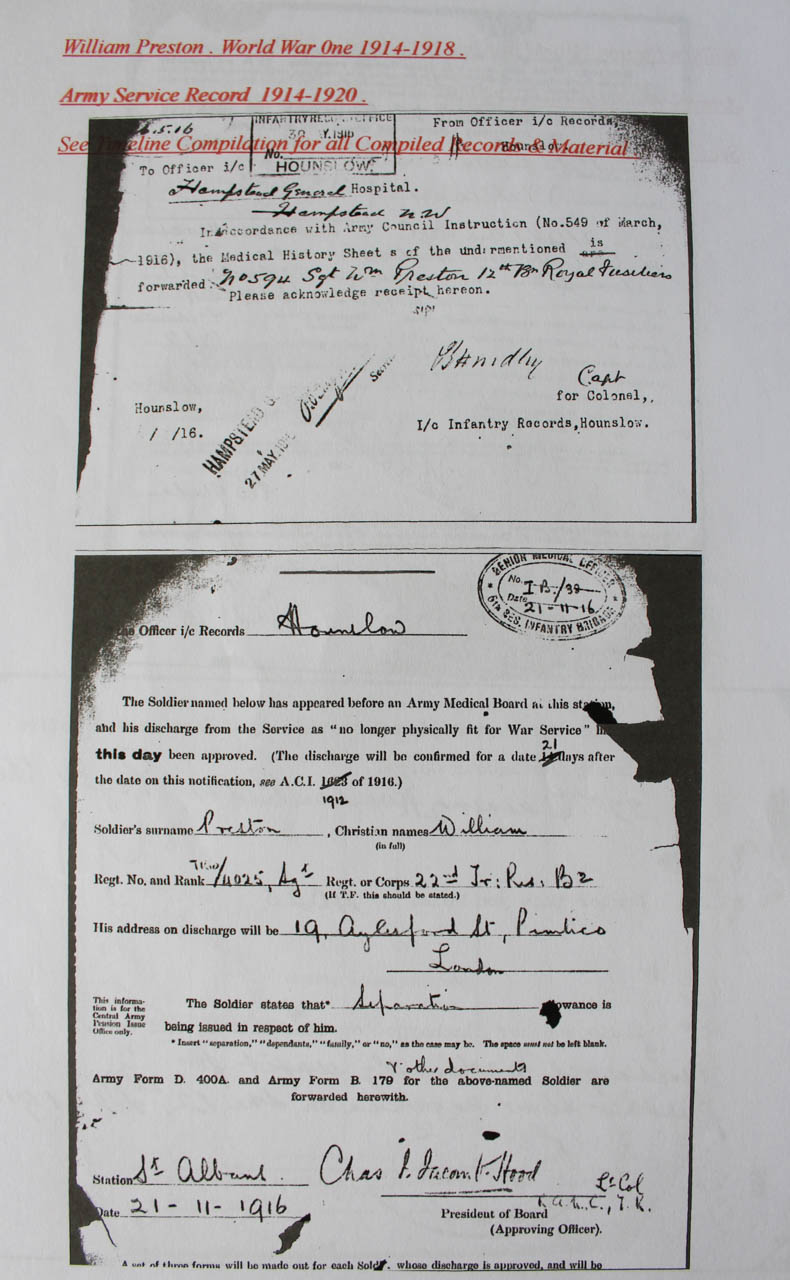 William Preston . World War One 1914-1918 .
Army Service Record 1914-1920 .
See Timeline Compilation for all Compiled Records & Material .
.5.16
INFANTRY RECORD OFFICE
30 Y.1916
No.
HOUNSLOW.
From Officer i/c Records,
Hounslow.
To Officer i/c
Hampstead General Hospital.
Hampstead N.W
In accordance with Army Council Instruction (No.549 of March,
1916), the Medical History Sheet s of the undermentioned is are
forwarded. No 594 Sgt Wm Preston 12th Bn Royal Fusiliers
Please acknowledge receipt hereon.
Capt
for Colonel,
Hounslow,
/ /16.
I/c Infantry Records, Hounslow.
HAMPSTEAD G
27 MAY. 191
SENIOR MEDICAL OFFICER
No. I.B./39
Date 21-11-16
6TH RES. INFANTRY BRIGADE
the Officer i/c Records Hounslow
The Soldier named below has appeared before an Army Medical Board at this station,
and his discharge from the Service as "no longer physically fit for War Service" h
this day been approved. (The discharge will be confirmed for a date 14 21 days after
the date on this notification, see A.C.I. 1912 of 1916.)
Soldier's surname Preston, Christian names William
(in full)
Regt. No. and Rank /4025, Sgt Regt. or Corps 22nd Tr: Res: Bn
(If T.F. this should be stated.)
His address on discharge will be 19, Aylesford St, Pimlico
London
This informa-
tion is for the
Central Army
Pension Issue
Office only.
The Soldier states that* Separation allowance is
being issued in respect of him.
* Insert "separation," "dependants," "family," or "no," as the case may be. The space must not be left blank.
& other documents
Army Form D. 400A. and Army Form B. 179 for the above-named Soldier are
forwarded herewith.
Station St Albans. Chas Hood Lt Col
R.A.M.C., T.R.
Date 21-11-1916
President of Board
(Approving Officer).
A set of three forms will be made out for each Soldier, whose discharge is approved, and will be